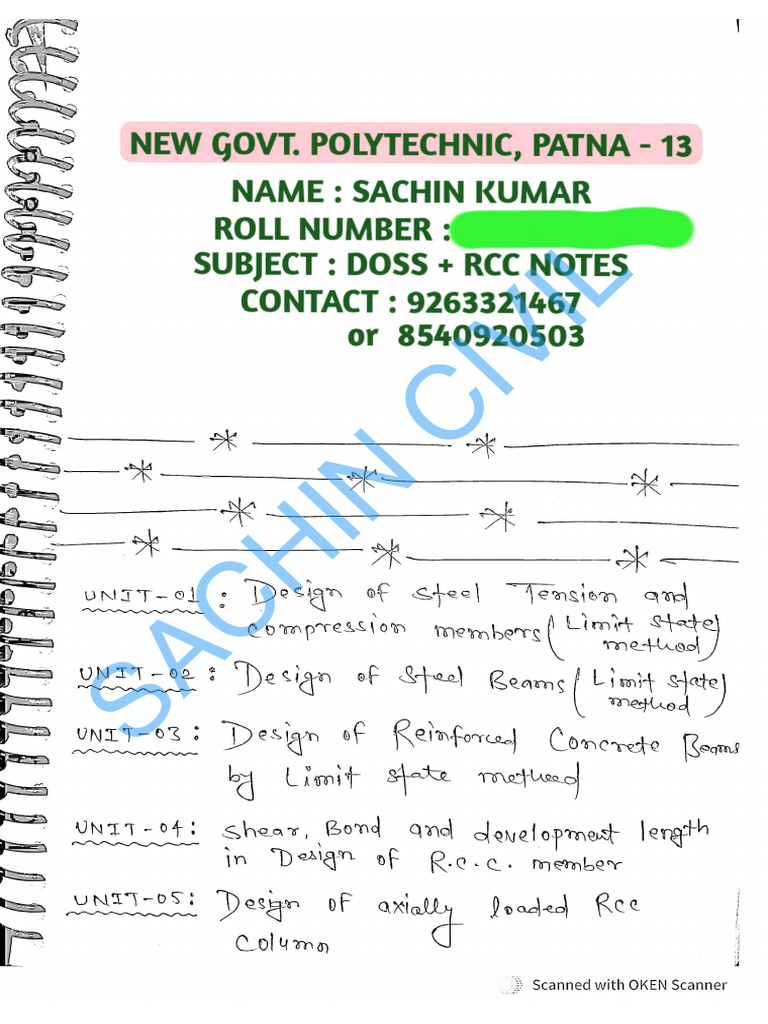 1
NEW GOVT. POLYTECHNIC, PATNA - 13
NAME : SACHIN KUMAR
ROLL NUMBER :
SUBJECT : DOSS + RCC NOTES
CONTACT : 9263321467
or 8540920503
SACHIN CIVIL
UNIT-01 : Design of Steel Tension and
compression members (Limit state
method)
UNIT-02 : Design of Steel Beams (Limit state
method)
UNIT-03 : Design of Reinforced Concrete Beams
by Limit state methead
UNIT-04 : Shear, Bond and development length
in Design of R.C.C. member
UNIT-05 : Design of axially loaded Rcc
Column
Scanned with OKEN Scanner